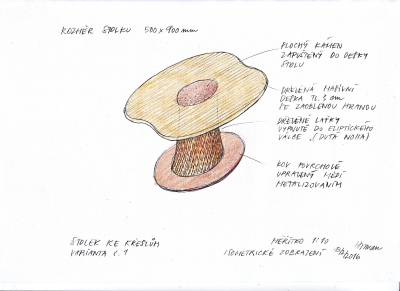 ROZMĚR STOLKU 500 x 900 mm
PLOCHÝ KÁMEN
ZAPUŠTĚNÝ DO DESKY
STOLU
DŘEVĚNÁ MASIVNÍ
DESKA TL. 3 cm
SE ZAOBLENOU HRANOU
DŘEVĚNÉ LAŤKY
VYPNUTÉ DO ELIPTICKÉHO
VÁLCE. (DUTÁ NOHA)
KOV POVRCHOVĚ
UPRAVENÝ MĚDÍ
METALIZOVANÍM
STOLEK KE KŘESLŮM
VARIANTA Č. 1
MĚŘÍTKO 1:10
ISOMETRICKÉ ZOBRAZENÍ
2016